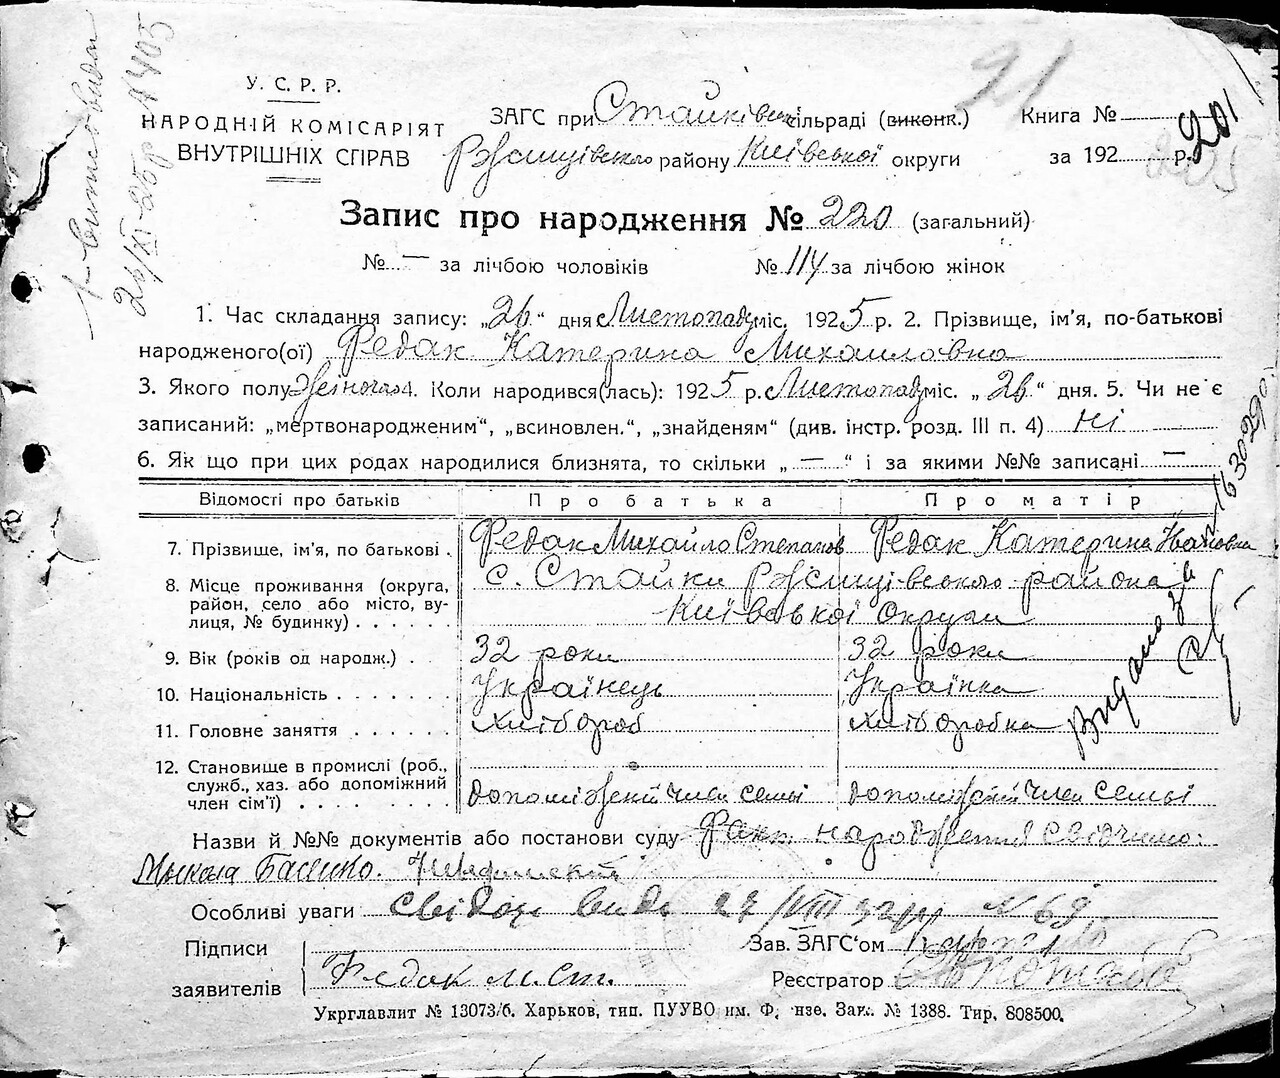 У. С. Р. Р.
НАРОДНІЙ КОМІСАРІЯТ
ВНУТРІШНІХ СПРАВ
ЗАГС при Стайківськ сільраді (виконк.)
Ржищівського району Київської округи
21
Книга №
за 192 р.
201
Запис про народження № 220 (загальний)
№ — за лічбою чоловіків № 114 за лічбою жінок
1. Час складання запису: „26“ дня Листопаду міс. 1925 р. 2. Прізвище, ім'я, по-батькові
народженого(ої) Федак Катерина Михайловна
3. Якого полу Жіночого 4. Коли народився(лась): 1925 р. Листопаду міс. „26“ дня. 5. Чи не є
записаний: „мертвонародженим“, „всиновлен.“, „знайденям“ (див. інстр. розд. III п. 4) Ні
6. Як що при цих родах народилися близнята, то скільки „—“ і за якими №№ записані —
Відомості про батьків Про батька Про матір
7. Прізвище, ім'я, по батькові . Федак Михайло Степанов Федак Катерина Івановна
8. Місце проживання (округа, с. Стайки Ржищівського района
район, село або місто, ву-
лиця, № будинку) . . . . . Київської Округи
9. Вік (років од народж.) . . 32 роки 32 роки
10. Національність . . . . . . Українець Українка
11. Головне заняття . . . . . . Хлібороб Хлібробка
12. Становище в промислі (роб.,
служб., хаз. або допоміжний
член сім'ї) . . . . . . . . допоміжний член семьі допоміжний член семьі
Назви й №№ документів або постанови суду Факт народження свідчило:
Микола Басенко.
Особливі уваги Свідоц видо 27/VIII 32 р N 69
Підписи
заявителів Федак М. Ст.
Зав. ЗАГС'ом
Реєстратор
Укрглавлит № 13073/б. Харьков, тип. ПУУВО им. Ф. нзе. Зак. № 1388. Тир. 808500.
Видана